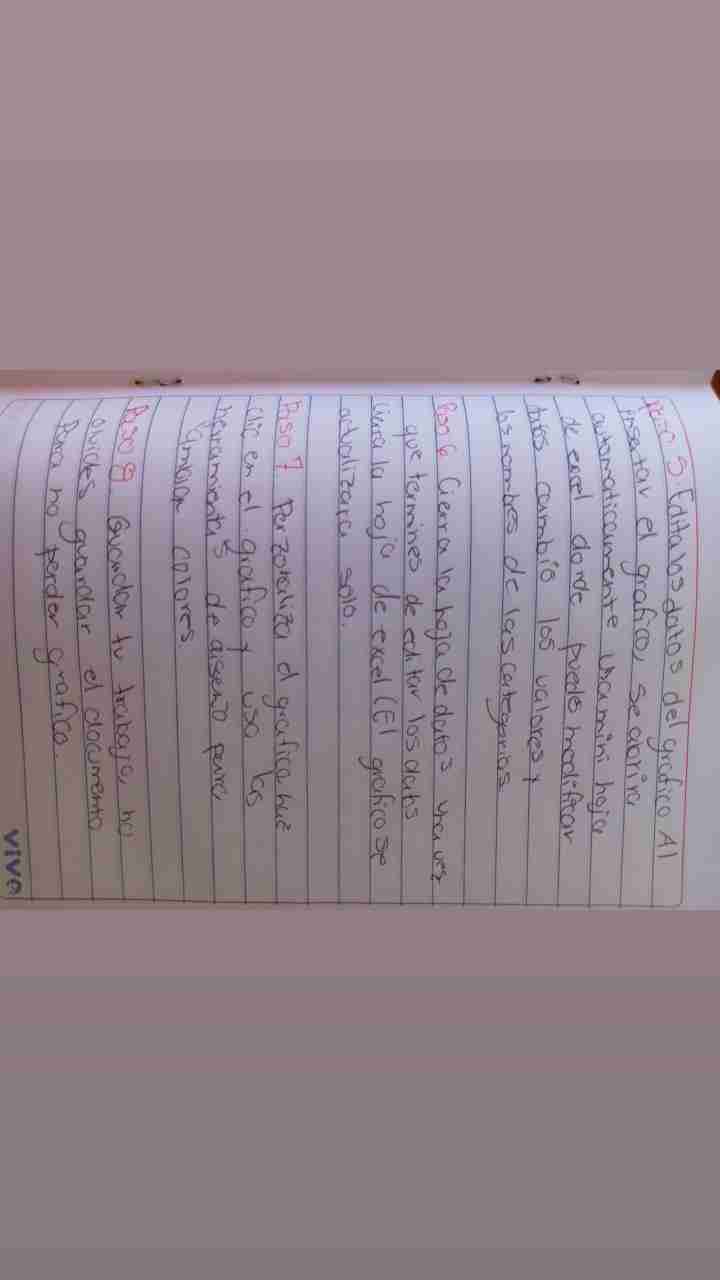 Paso 5. Edita los datos del grafico Al
insertar el grafico, se abrira
automaticamente una mini hoja
de excel donde puede modificar
datos cambio los valores y
los nombres de las categorias
Paso 6 Cierra la hoja de datos una vez
que termines de editar los datos
cierra la hoja de excel (El grafico se
actualizara solo.
Paso 7 Perzonaliza el grafico haz
clic en el grafico y usa las
herramientas de diseño para
cambiar colores
Paso 8 Guardar tu trabajo, no
olvides guardar el documento
Para no perder grafico.
vivo